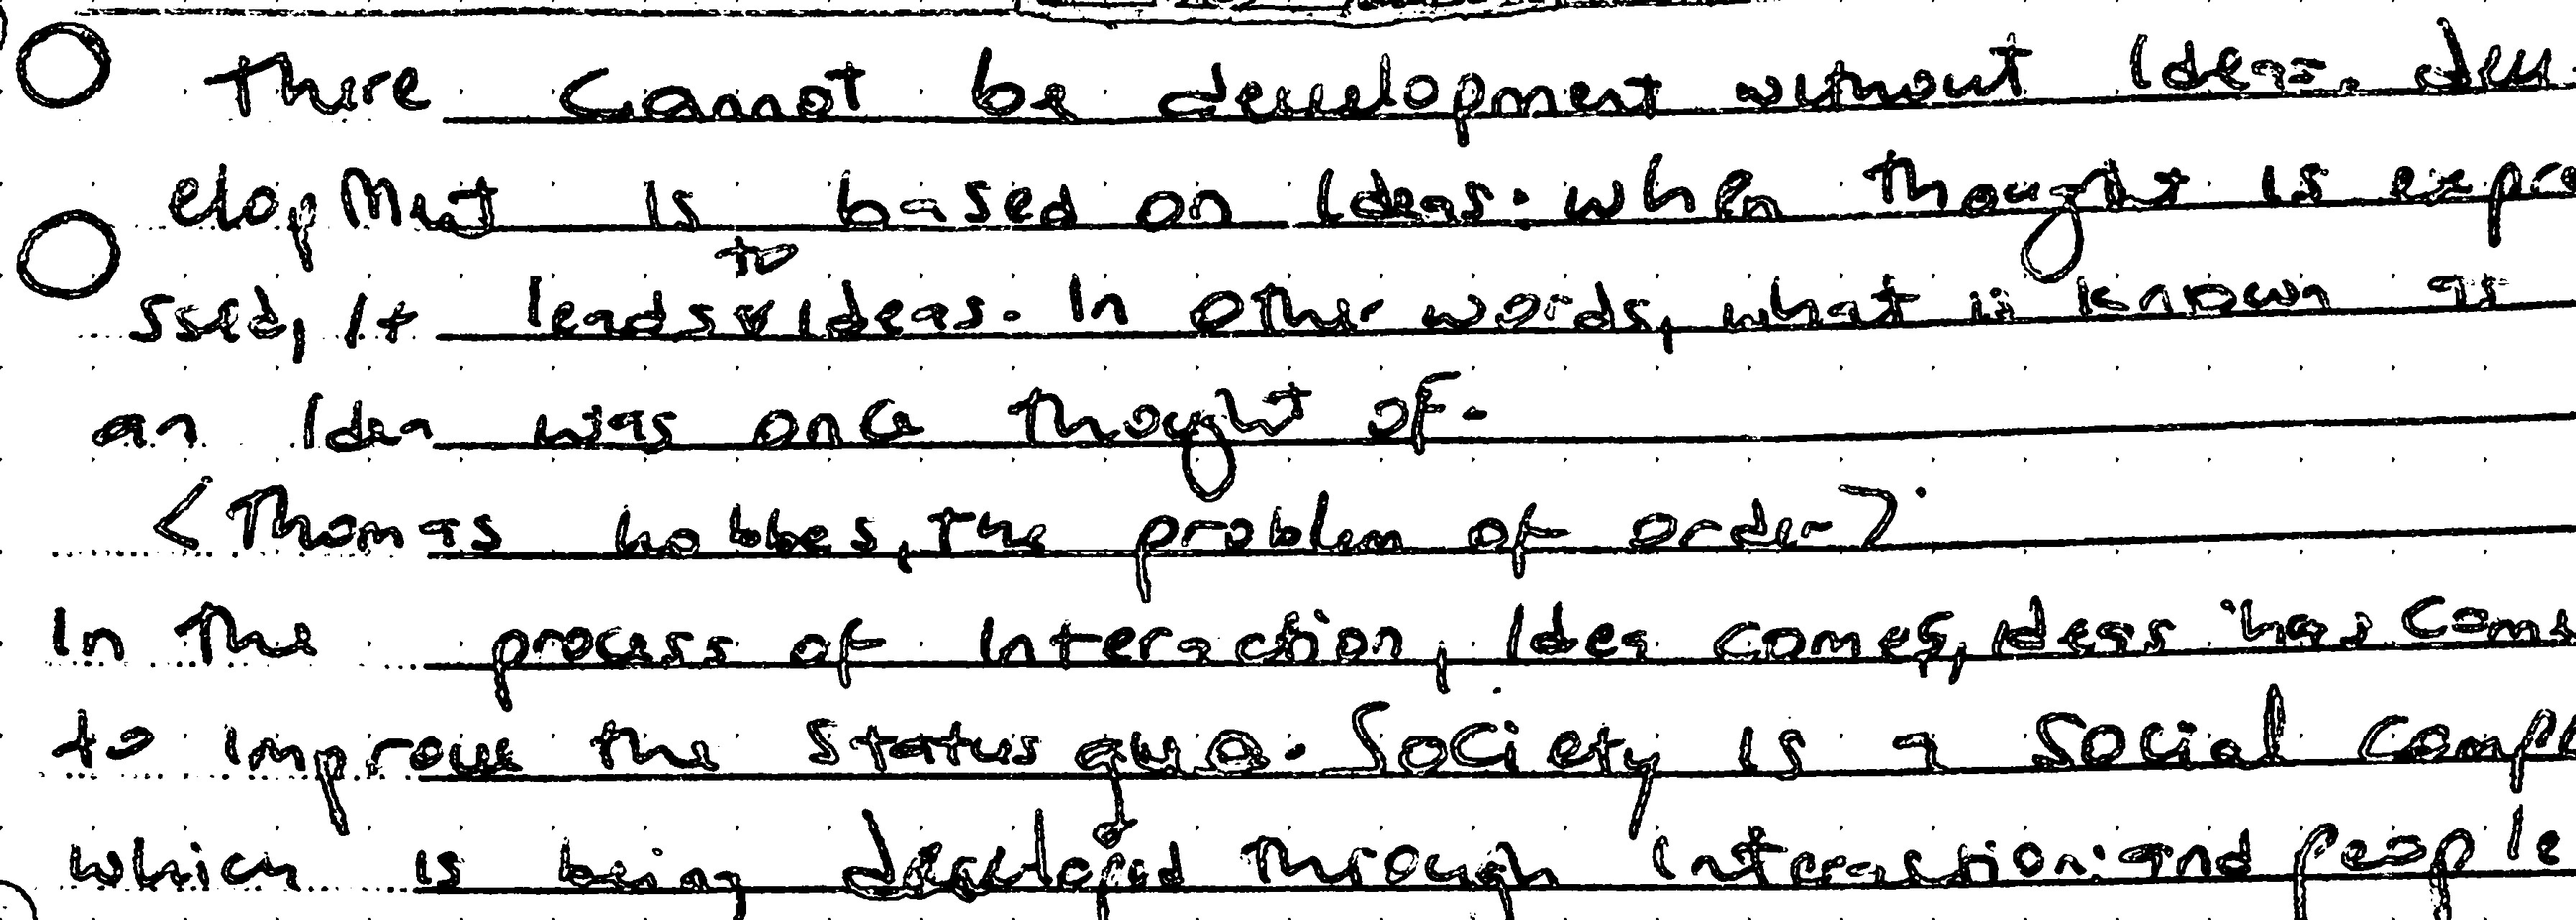 There cannot be development without Ideas. dev
elopMent is based on Ideas. when thought is expre
ssed, it leads to Ideas. In other words, what is known as
an Idea was once thought of.
<Thomas hobbes, the problem of order>.
In the process of Interaction, Idea comes, ideas has come
to improve the status quo. Society is a Social comp
which is being developed through interaction and people